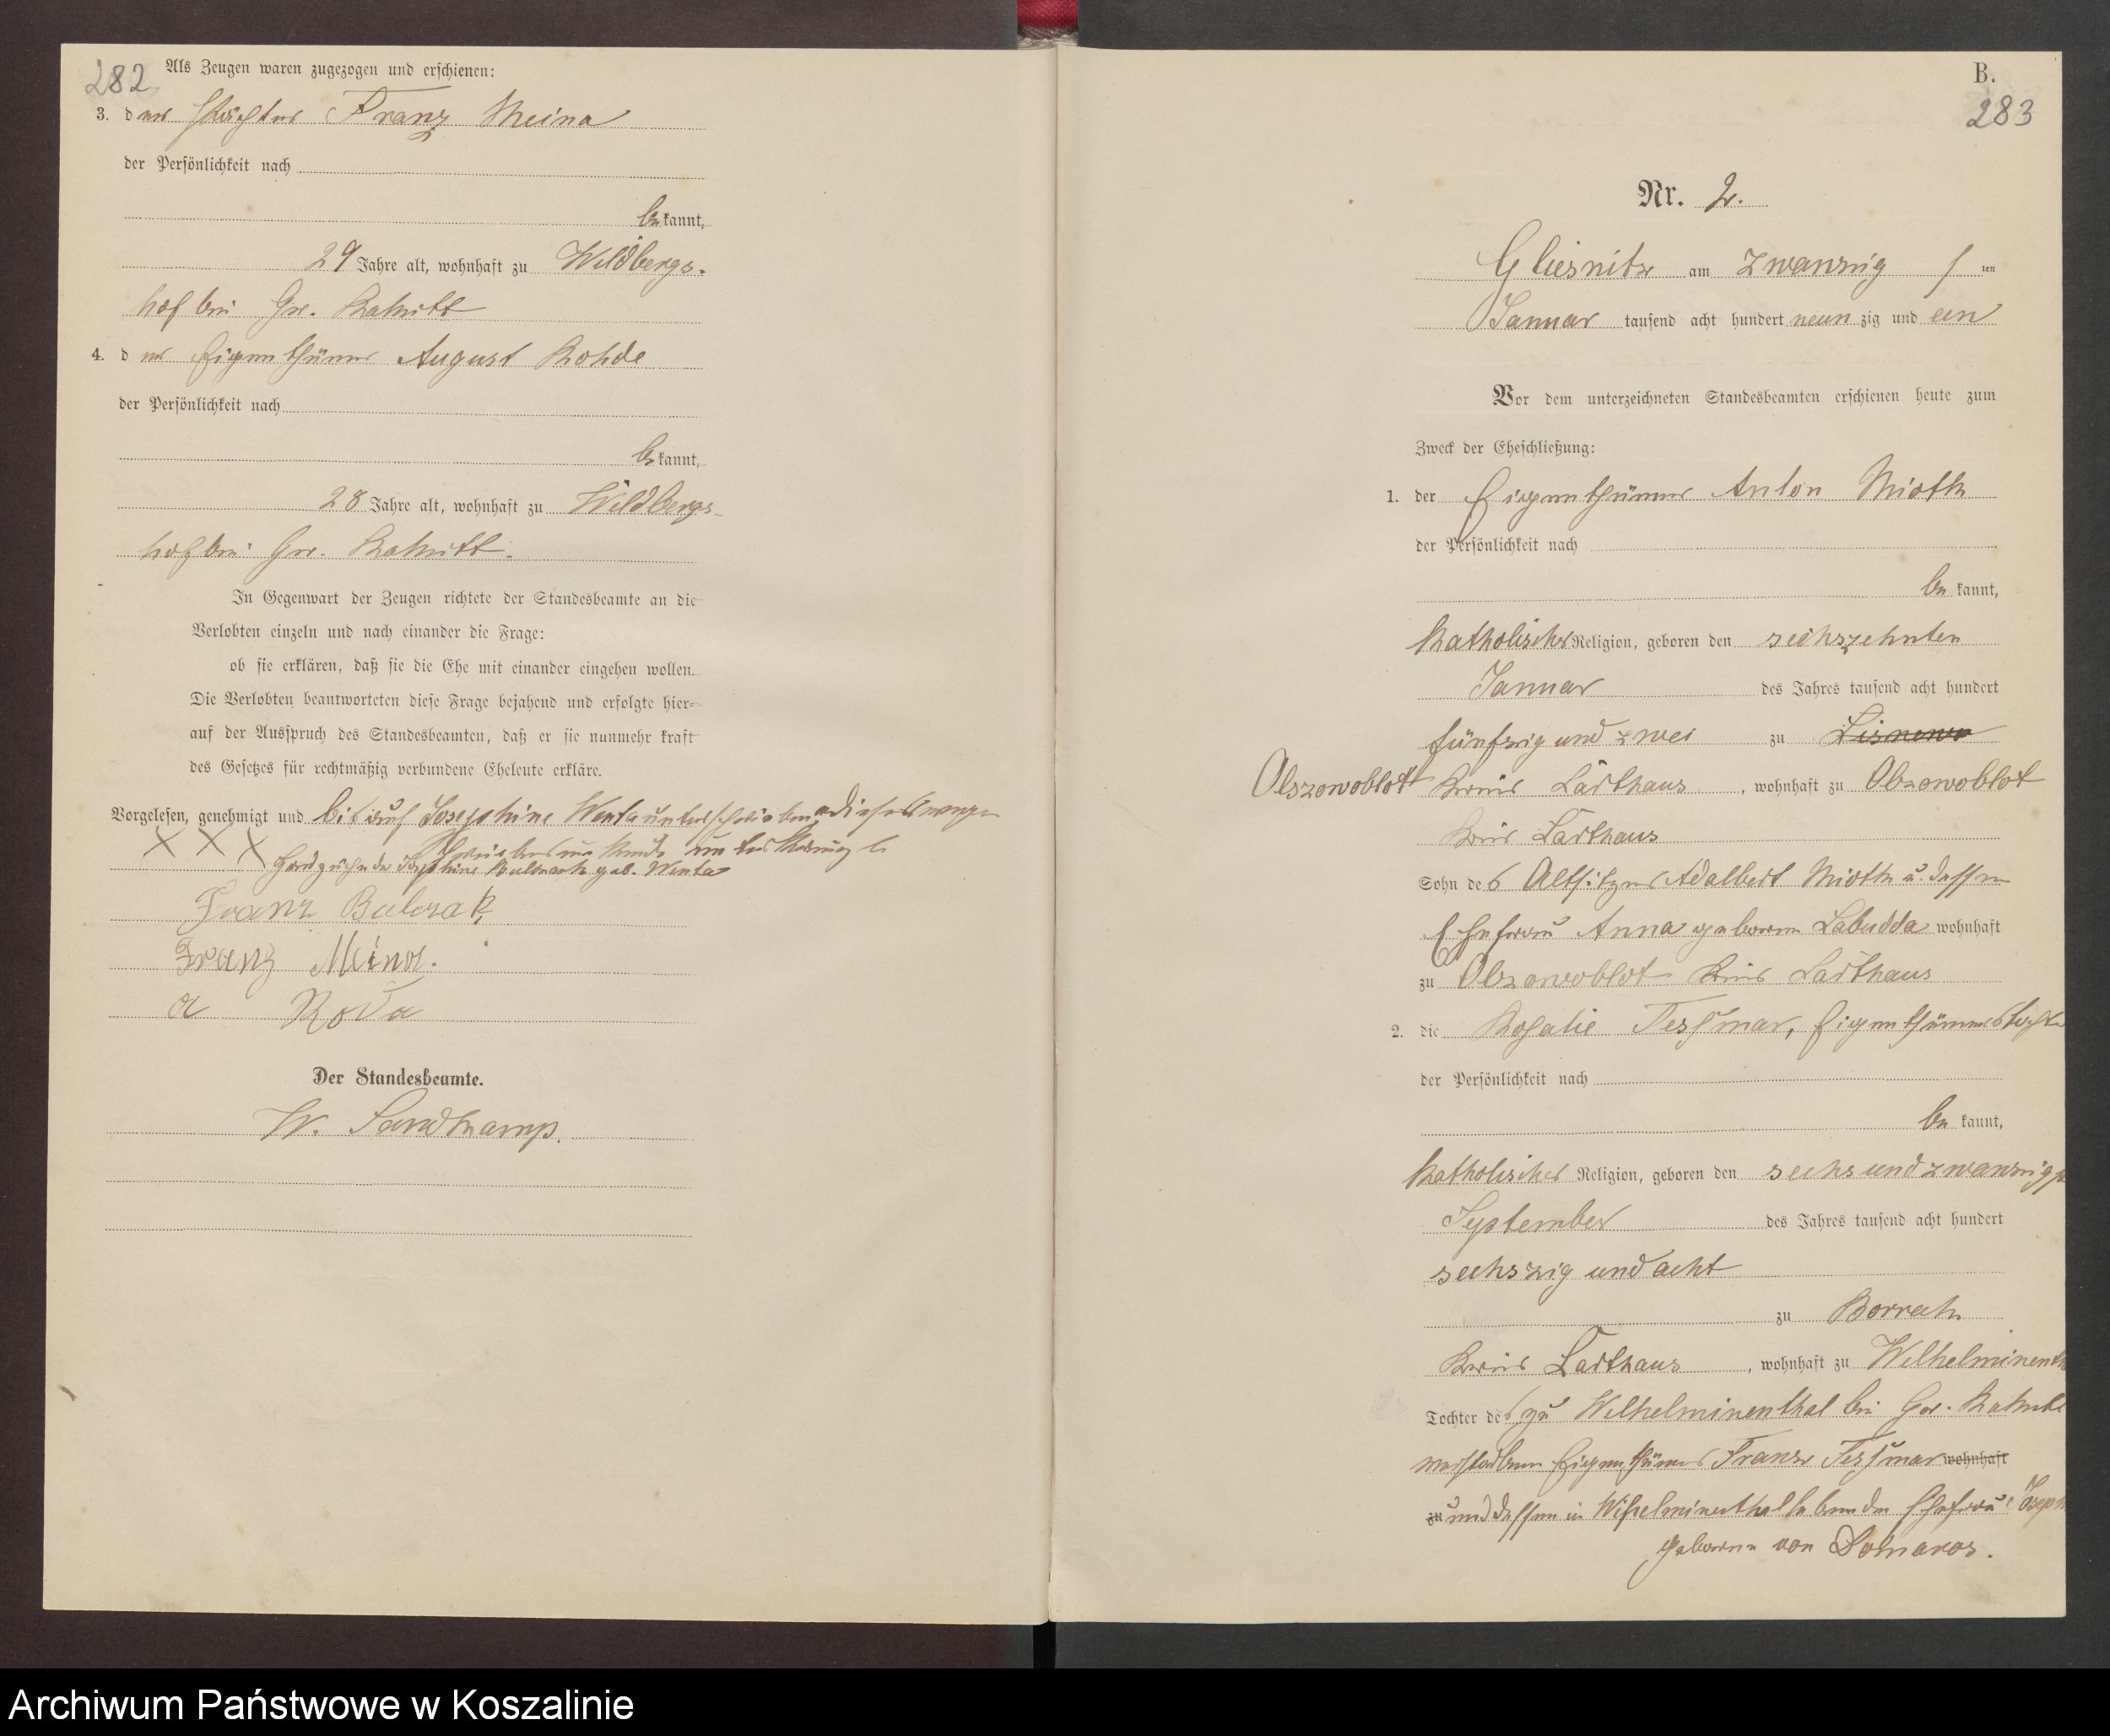 282
Als Zeugen waren zugezogen und erschienen:
3. der Pächter Franz Meina
der Persönlichkeit nach
bekannt,
29 Jahre alt, wohnhaft zu Wildbergs-
hof bei Gr. Rakitt
4. der Eigenthümer August Rohde
der Persönlichkeit nach
bekannt,
28 Jahre alt, wohnhaft zu Wildbergs-
hof bei Gr. Rakitt.
In Gegenwart der Zeugen richtete der Standesbeamte an die
Verlobten einzeln und nach einander die Frage:
ob sie erklären, daß sie die Ehe mit einander eingehen wollen.
Die Verlobten beantworteten diese Frage bejahend und erfolgte hier-
auf der Ausspruch des Standesbeamten, daß er sie nunmehr kraft
des Gesetzes für rechtmäßig verbundene Eheleute erkläre.
Vorgelesen, genehmigt und bis auf Josephine Wenta unterschrieben, diese wegen
XXX Schreibensunkunde unterkreuzt
Handzeichen der Josephine geb. Wenta
Franz Bulczak
Franz Meina.
a Roda
Der Standesbeamte.
W. Sandkamp.
B.
283
Nr. 2.
Gliesnitz am zwanzigsten
Januar tausend acht hundert neunzig und ein
Vor dem unterzeichneten Standesbeamten erschienen heute zum
Zweck der Eheschließung:
1. der Eigenthümer Anton Miotk
der Persönlichkeit nach
bekannt,
katholischer Religion, geboren den sechszehnten
Januar des Jahres tausend acht hundert
fünfzig und zwei zu Lisnowo
Abszowoblott Kreis Carthaus, wohnhaft zu Abzowoblot
Kreis Carthaus
Sohn des Altsitzers Adalbert Miotk u. dessen
Ehefrau Anna geboren Labudda wohnhaft
zu Abzowoblot Kreis Carthaus
2. die Rosalie Tessmar, Eigenthümerstochter
der Persönlichkeit nach
bekannt,
katholischer Religion, geboren den sechsundzwanzigsten
September des Jahres tausend acht hundert
sechszig und acht
zu Borreck
Kreis Carthaus, wohnhaft zu Wilhelminenth
Tochter des zu Wilhelminenthal bei Gr. Rakitt
verstorbenen Eigenthümers Franz Tessmar wohnhaft
zu und dessen in Wilhelminenthal lebenden Ehefrau Joseph
geboren von Domaros.